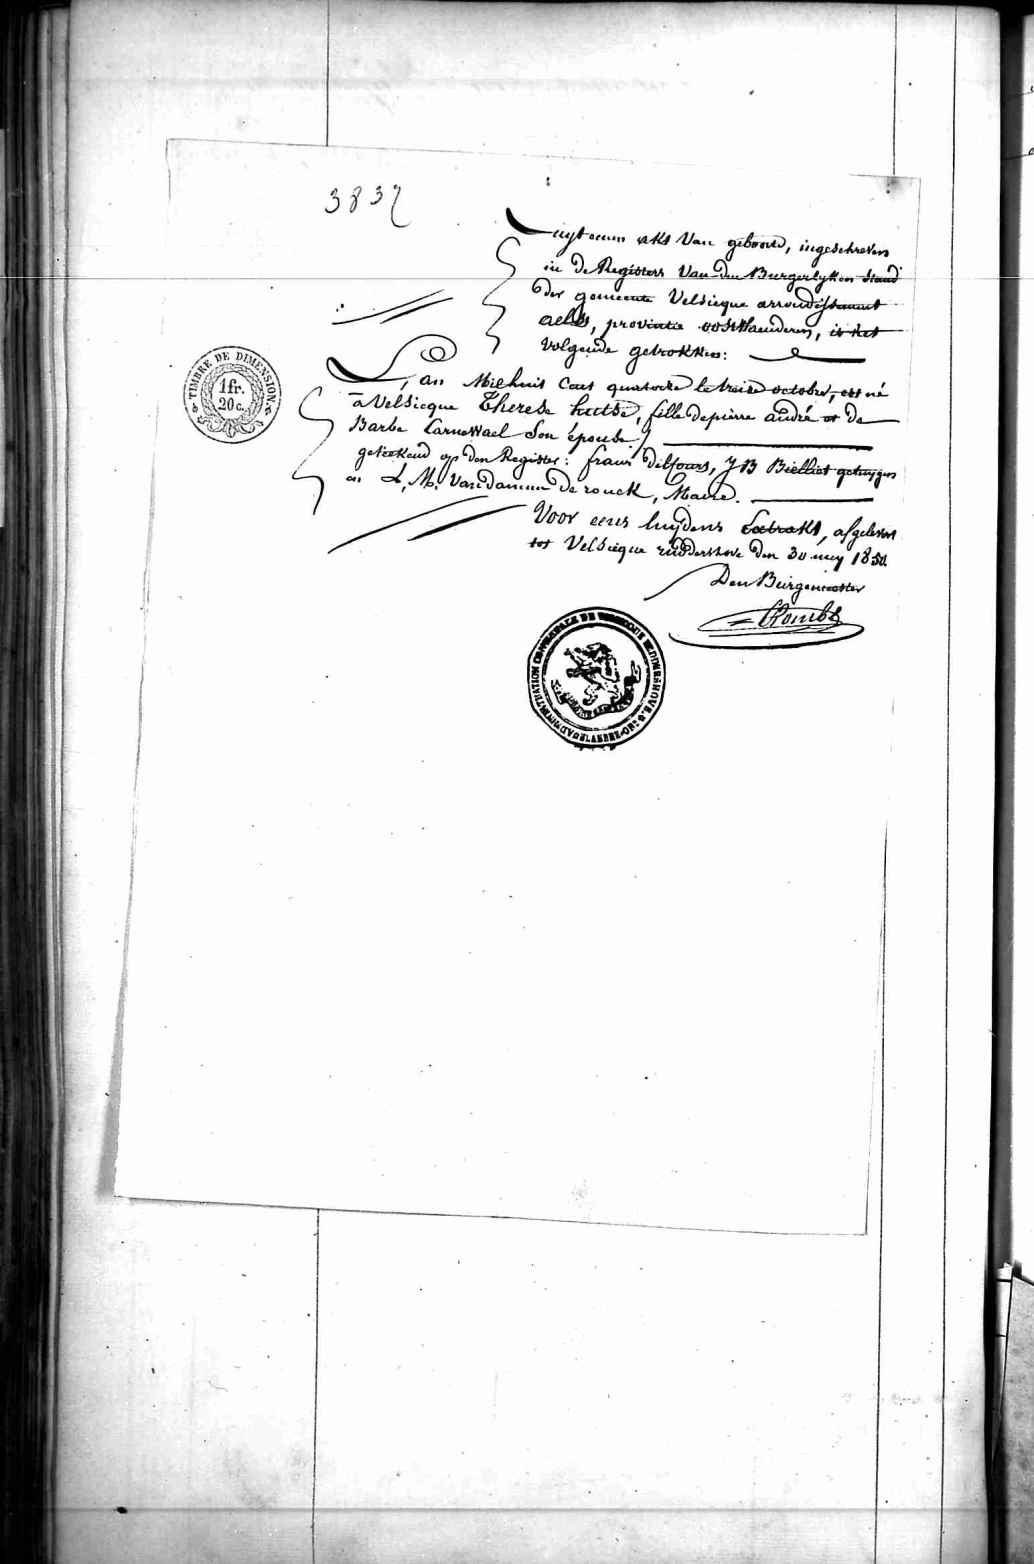 3837
TIMBRE DE DIMENSION
1 fr.
20 c.
Uuyt eenen akt van geboorte, ingeschreven
in de Registers van den Burgerlyken stand
der gemeente Velsicque arrondissement
, provintie oostvlaenderen, is het
volgende getrokken:
L'an Mil huit Cent quatorze le treize octobre, est né
à Velsicque Therese hutse, fille de pierre andré et de
Barbe Carnewael Son épouse
geteekend op den Register: frans Dilfours, J B getuygen
en L. M. Vandamme De ronck, Maire.
Voor eens luydens Extrakt, afgeleverd
tot Velsicque ruddershove den 30 mey 1850
Den Burgemeester